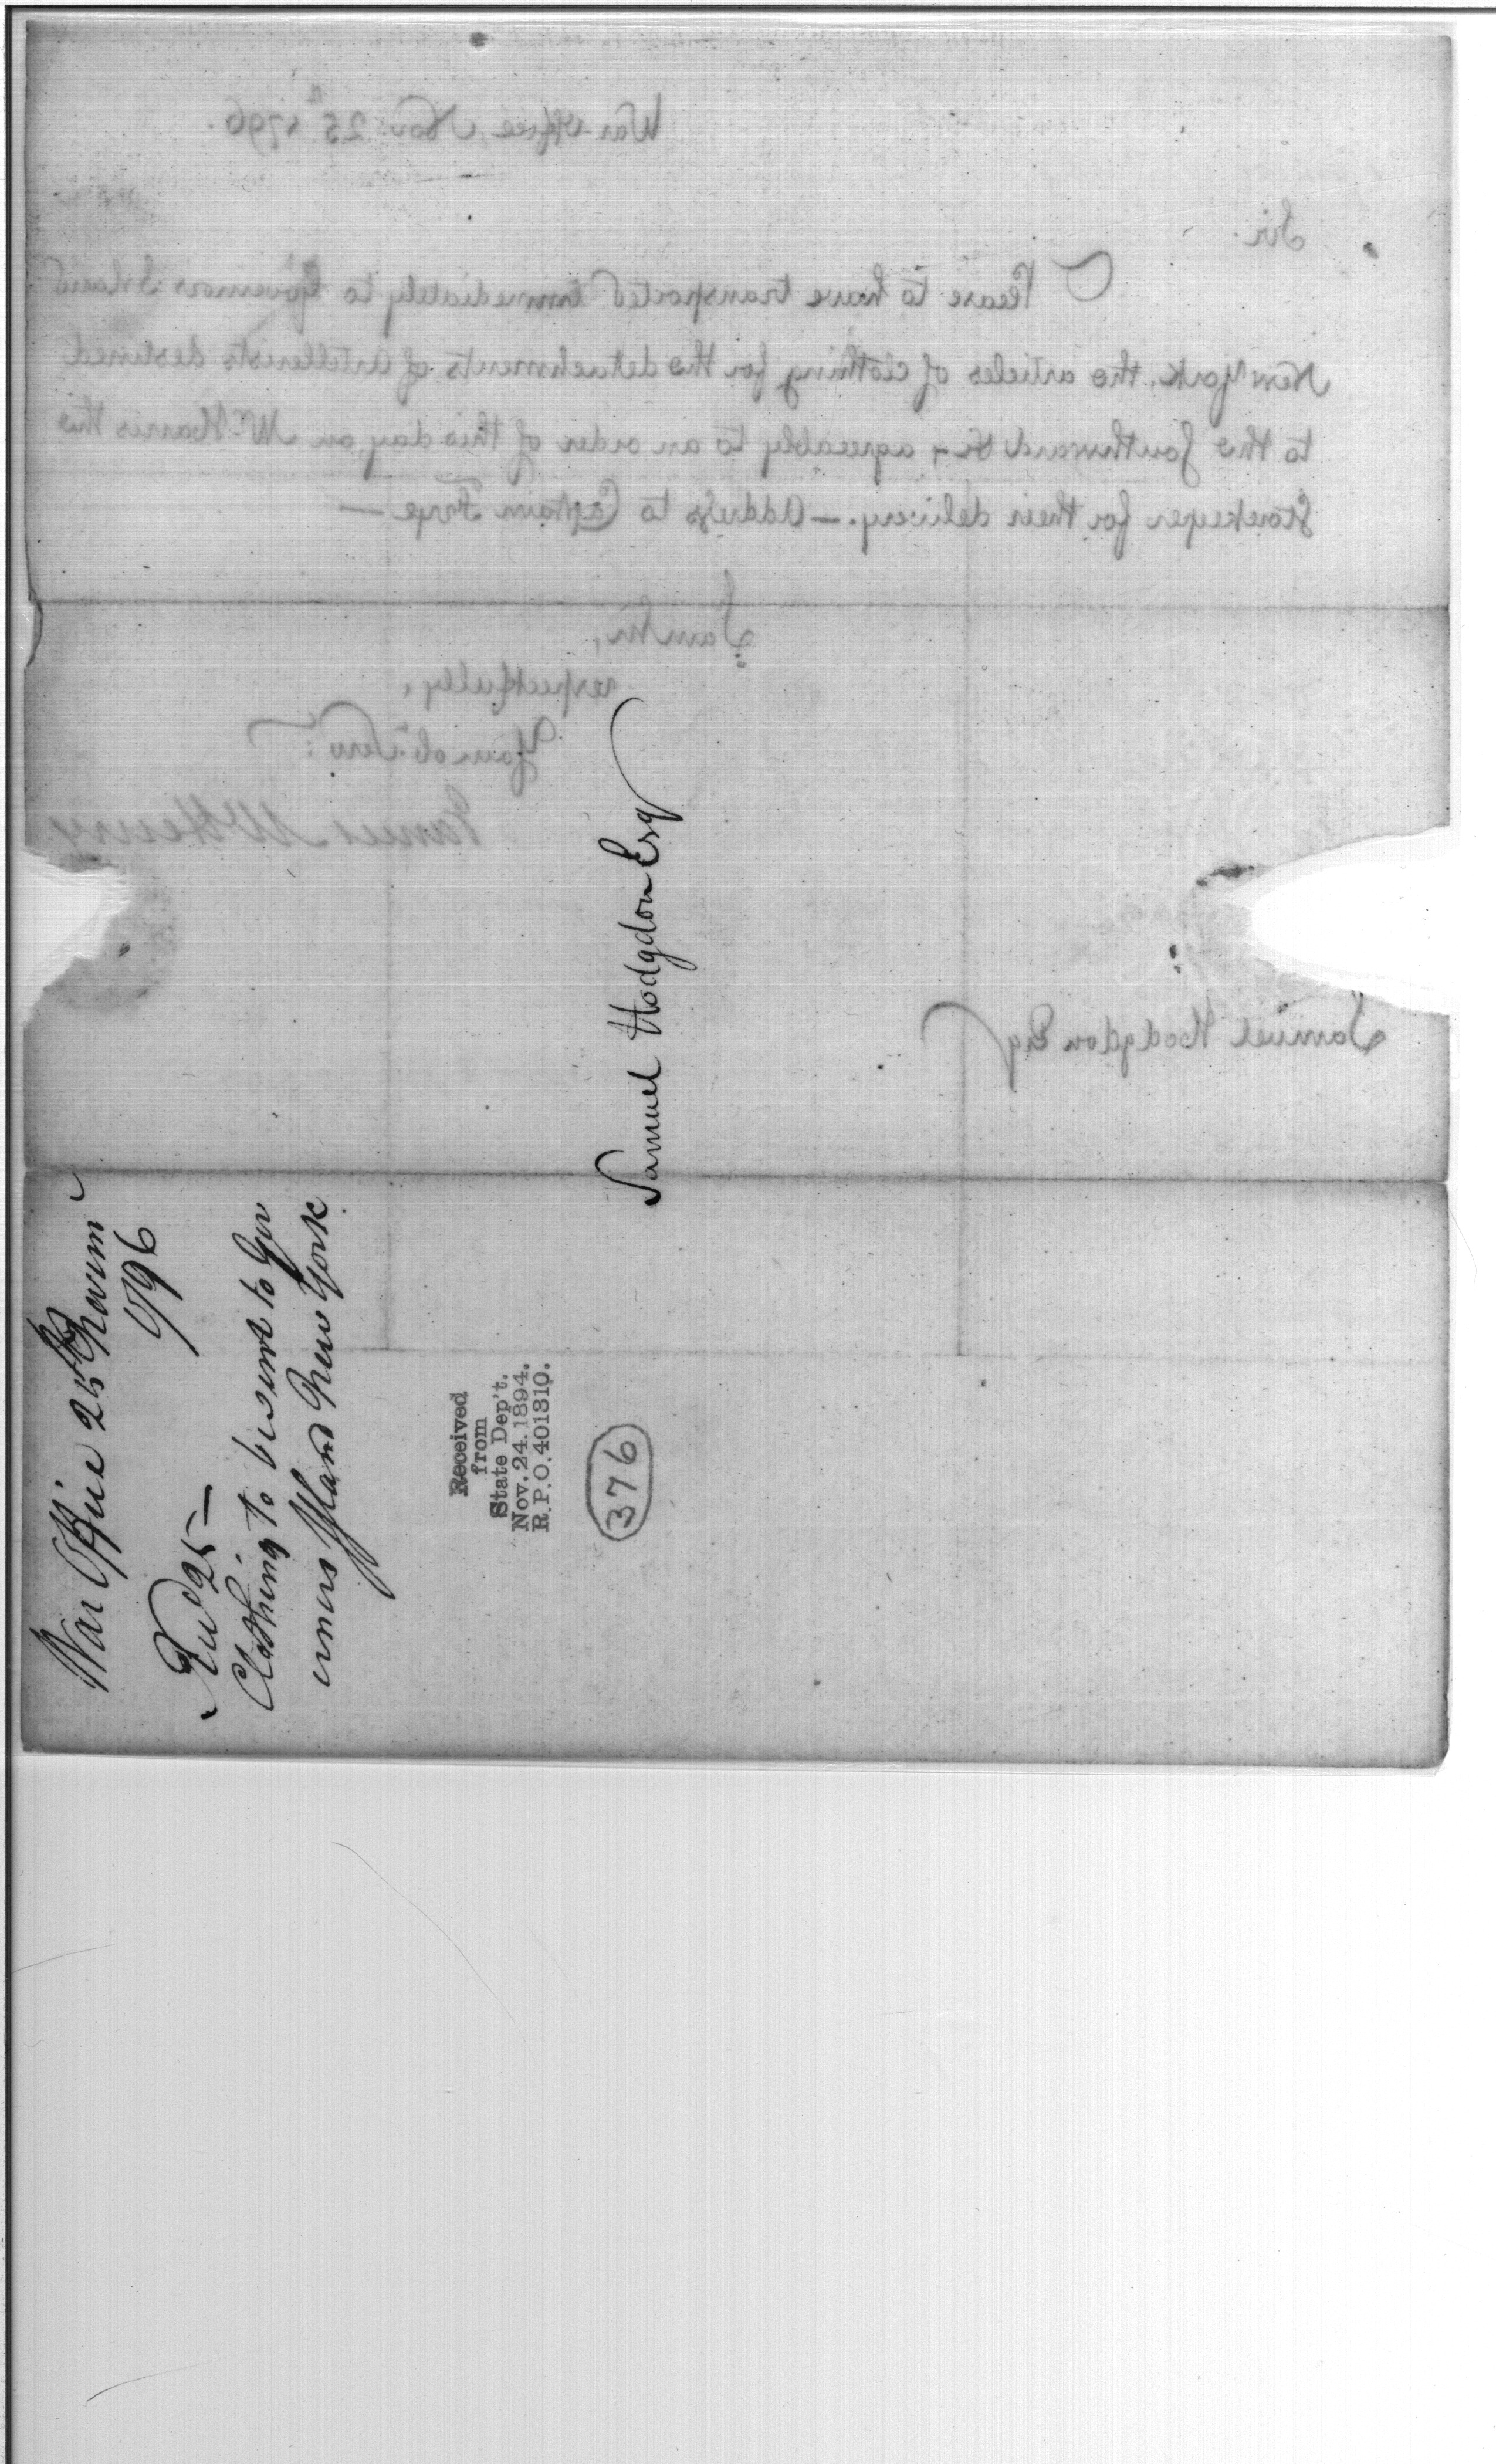 War Office Nov. 25th 1796.
Sir.
Please to have transported immediately to Governors Island
New York. the articles of clothing for the detachments of artillerists destined
to the Southward &c agreeably to an order of this day on Mr. Harris the
Storekeeper for their delivery. — Address to Captain Frye —
I am Sir,
respectfully,
Your ob. Serv:
James McHenry
Samuel Hodgdon Esq
Samuel Hodgdon Esq
War Office 25th Novem
1796
Recd 25 —
Clothing to be sent to Gov
ernors Island New York
Received
from
State Dep't.
Nov. 24. 1894.
R.P.O. 401310.
376